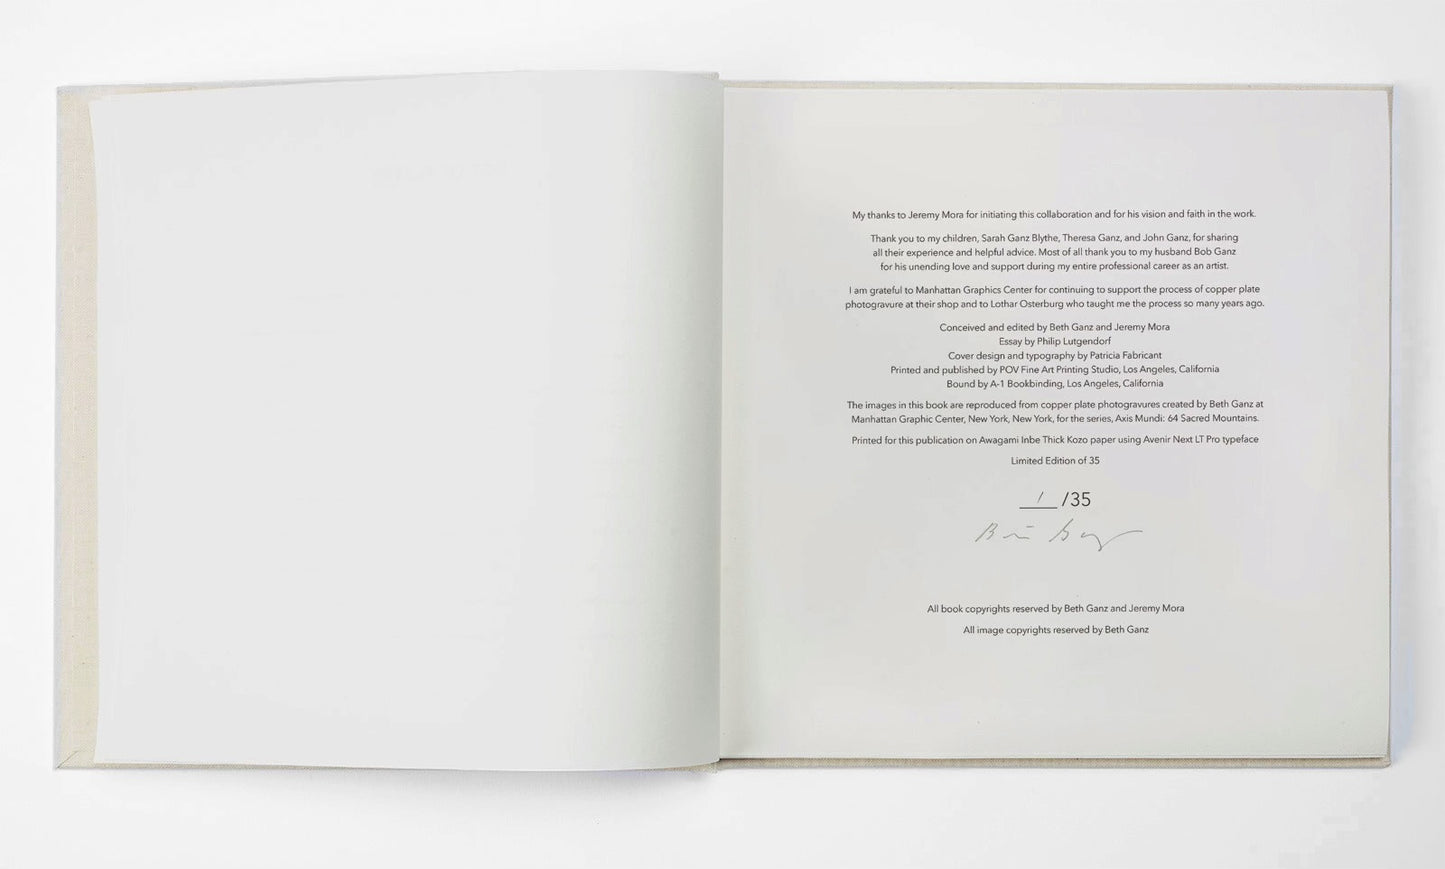 My thanks to Jeremy Mora for initiating this collaboration and for his vision and faith in the work.
Thank you to my children, Sarah Ganz Blythe, Theresa Ganz, and John Ganz, for sharing
all their experience and helpful advice. Most of all thank you to my husband Bob Ganz
for his unending love and support during my entire professional career as an artist.
I am grateful to Manhattan Graphics Center for continuing to support the process of copper plate
photogravure at their shop and to Lothar Osterburg who taught me the process so many years ago.
Conceived and edited by Beth Ganz and Jeremy Mora
Essay by Philip Lutgendorf
Cover design and typography by Patricia Fabricant
Printed and published by POV Fine Art Printing Studio, Los Angeles, California
Bound by A-1 Bookbinding, Los Angeles, California
The images in this book are reproduced from copper plate photogravures created by Beth Ganz at
Manhattan Graphic Center, New York, New York, for the series, Axis Mundi: 64 Sacred Mountains.
Printed for this publication on Awagami Inbe Thick Kozo paper using Avenir Next LT Pro typeface
Limited Edition of 35
1 /35
Beth Ganz
All book copyrights reserved by Beth Ganz and Jeremy Mora
All image copyrights reserved by Beth Ganz